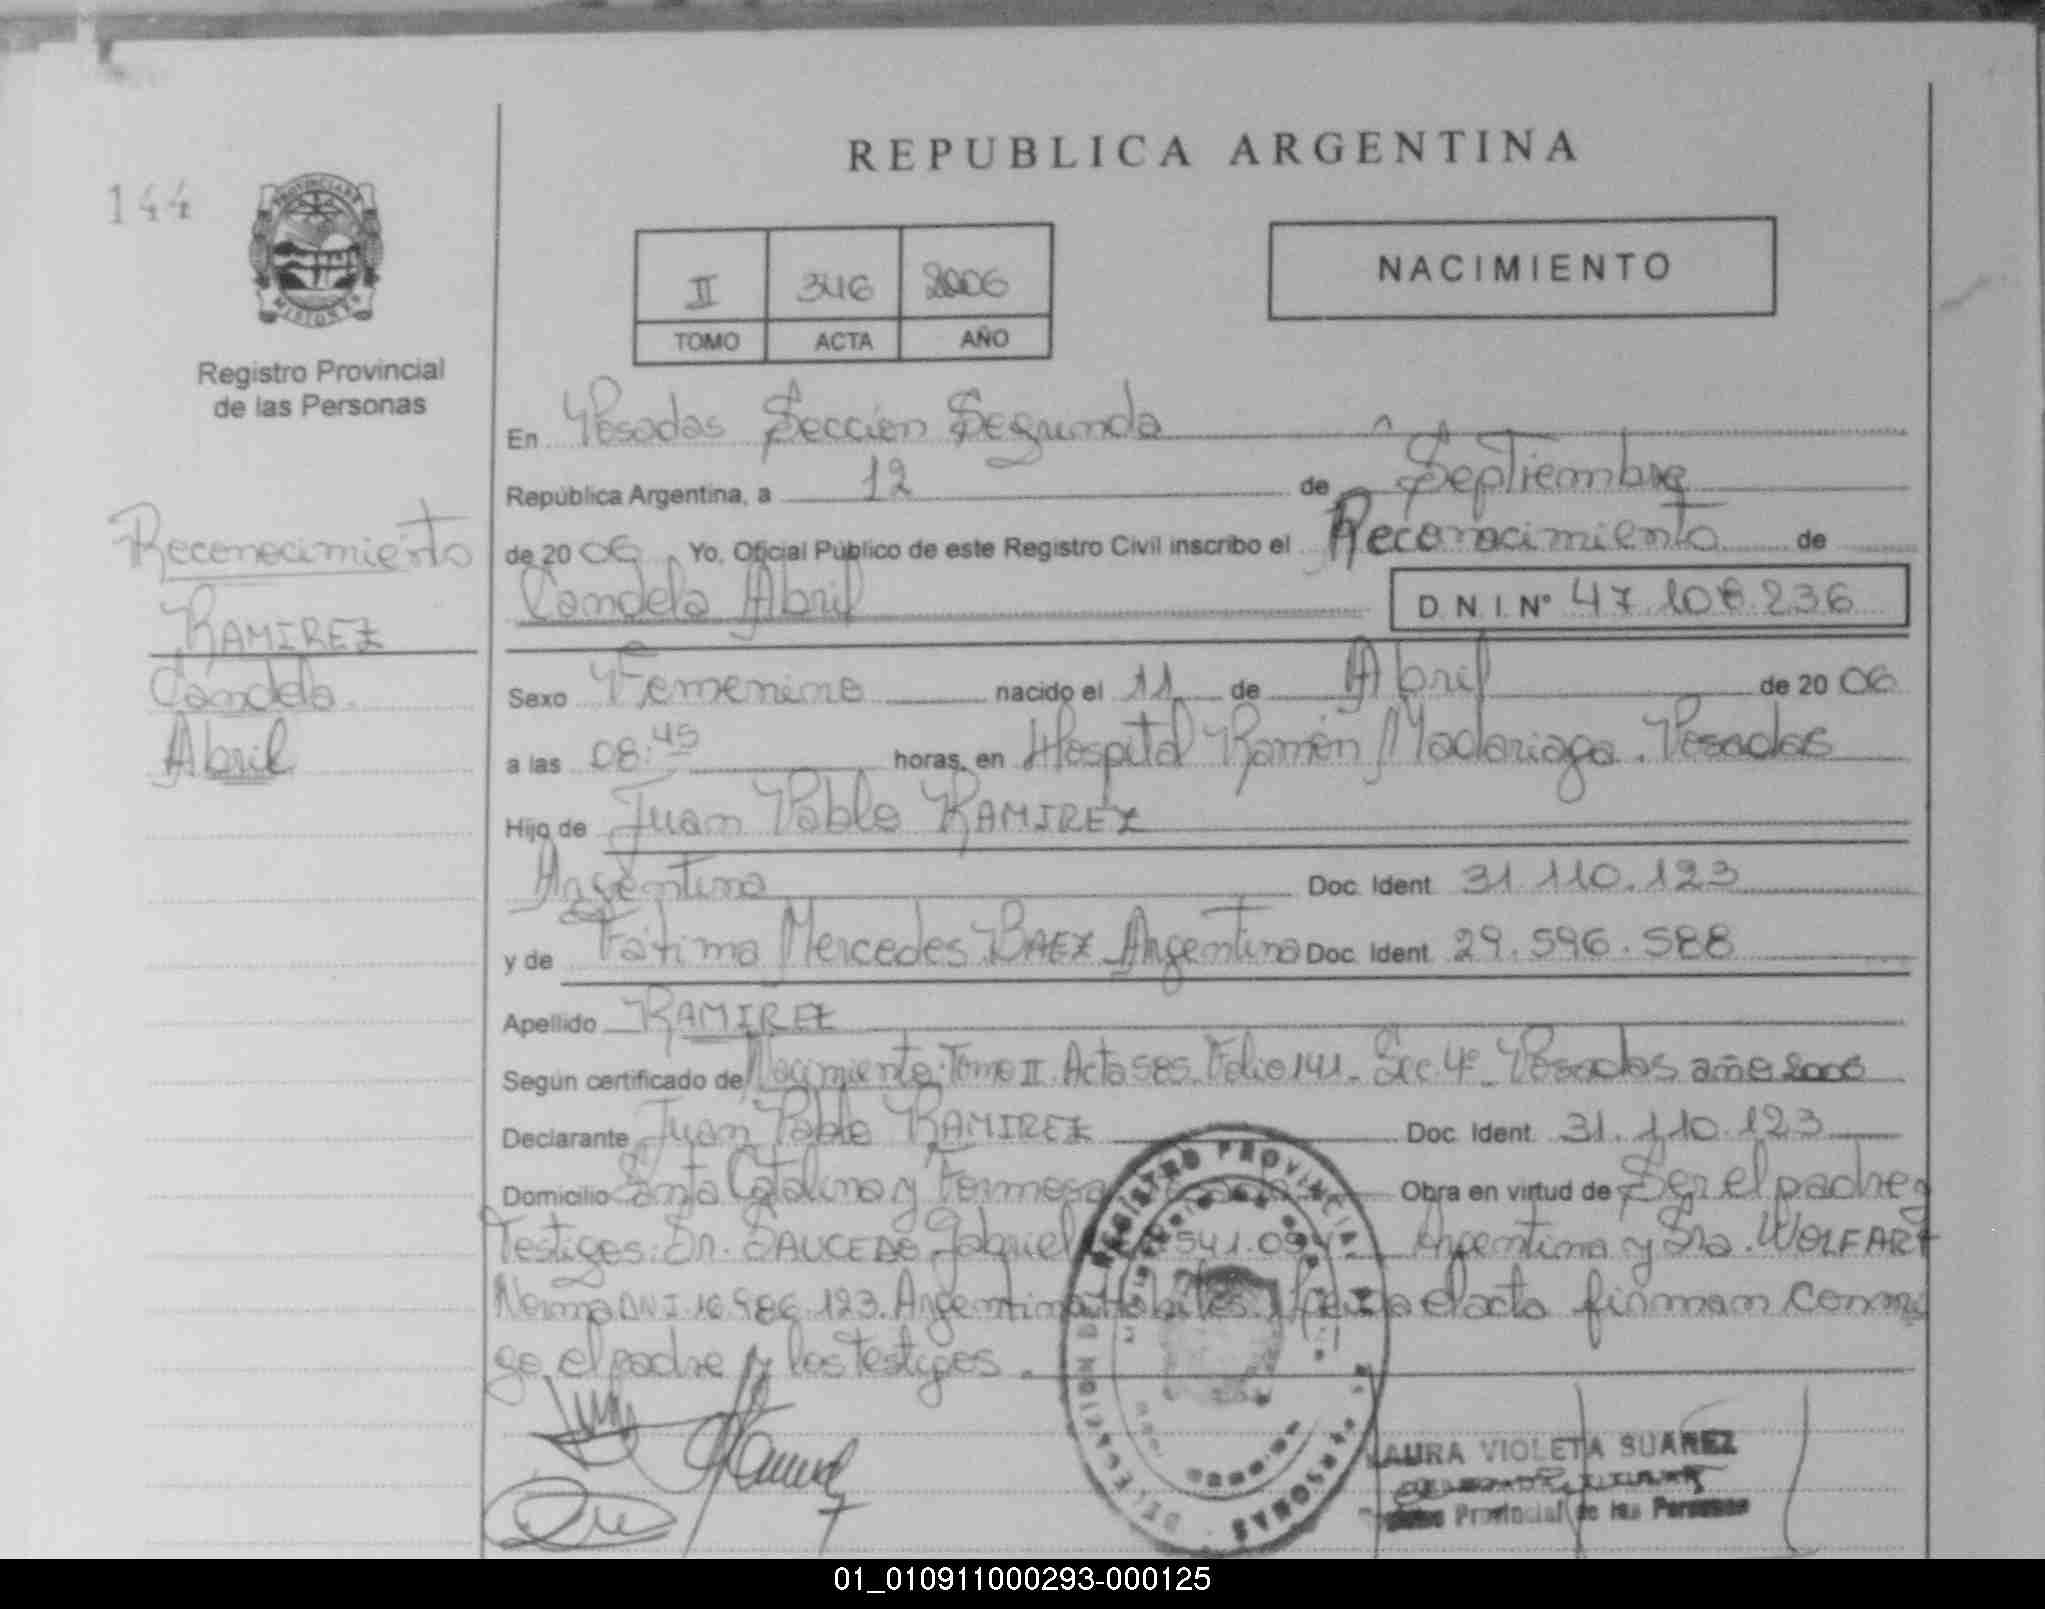 REPUBLICA ARGENTINA
144
PROVINCIA DE
MISIONES
II 346 2006
TOMO ACTA AÑO
NACIMIENTO
Registro Provincial
de las Personas
En Posadas Sección Segunda
República Argentina, a 12 de Septiembre
de 2006 Yo, Oficial Público de este Registro Civil inscribo el Reconocimiento de
Candela Abril D.N.I. Nº 47.108.236
Reconocimiento
RAMIREZ
Candela
Abril
Sexo Femenino nacido el 11 de Abril de 2006
a las 08:45 horas, en Hospital Ramón Madariaga. Posadas
Hijo de Juan Pablo RAMIREZ
Argentino Doc. Ident. 31.110.123
y de Fátima Mercedes BAEZ Argentina Doc. Ident. 29.596.588
Apellido RAMIREZ
Según certificado de Nacimiento. Tomo II. Acta 585. Folio 141. Sec. 4º. Posadas año 2006
Declarante Juan Pablo RAMIREZ Doc. Ident. 31.110.123
Domicilio Santa Catalina y Formosa Obra en virtud de Ser el padre
Testigos: Sr. SAUCEDO Gabriel 541.094. Argentino y Sra. WOLFART
Norma DNI 16.986.123. Argentina Habiles. el acta firman conmi
go el padre y los testigos.
REGISTRO PROVINCIAL DE LAS PERSONAS
DELEGACION
LAURA VIOLETA SUAREZ
Provincial de las Personas
01_010911000293-000125